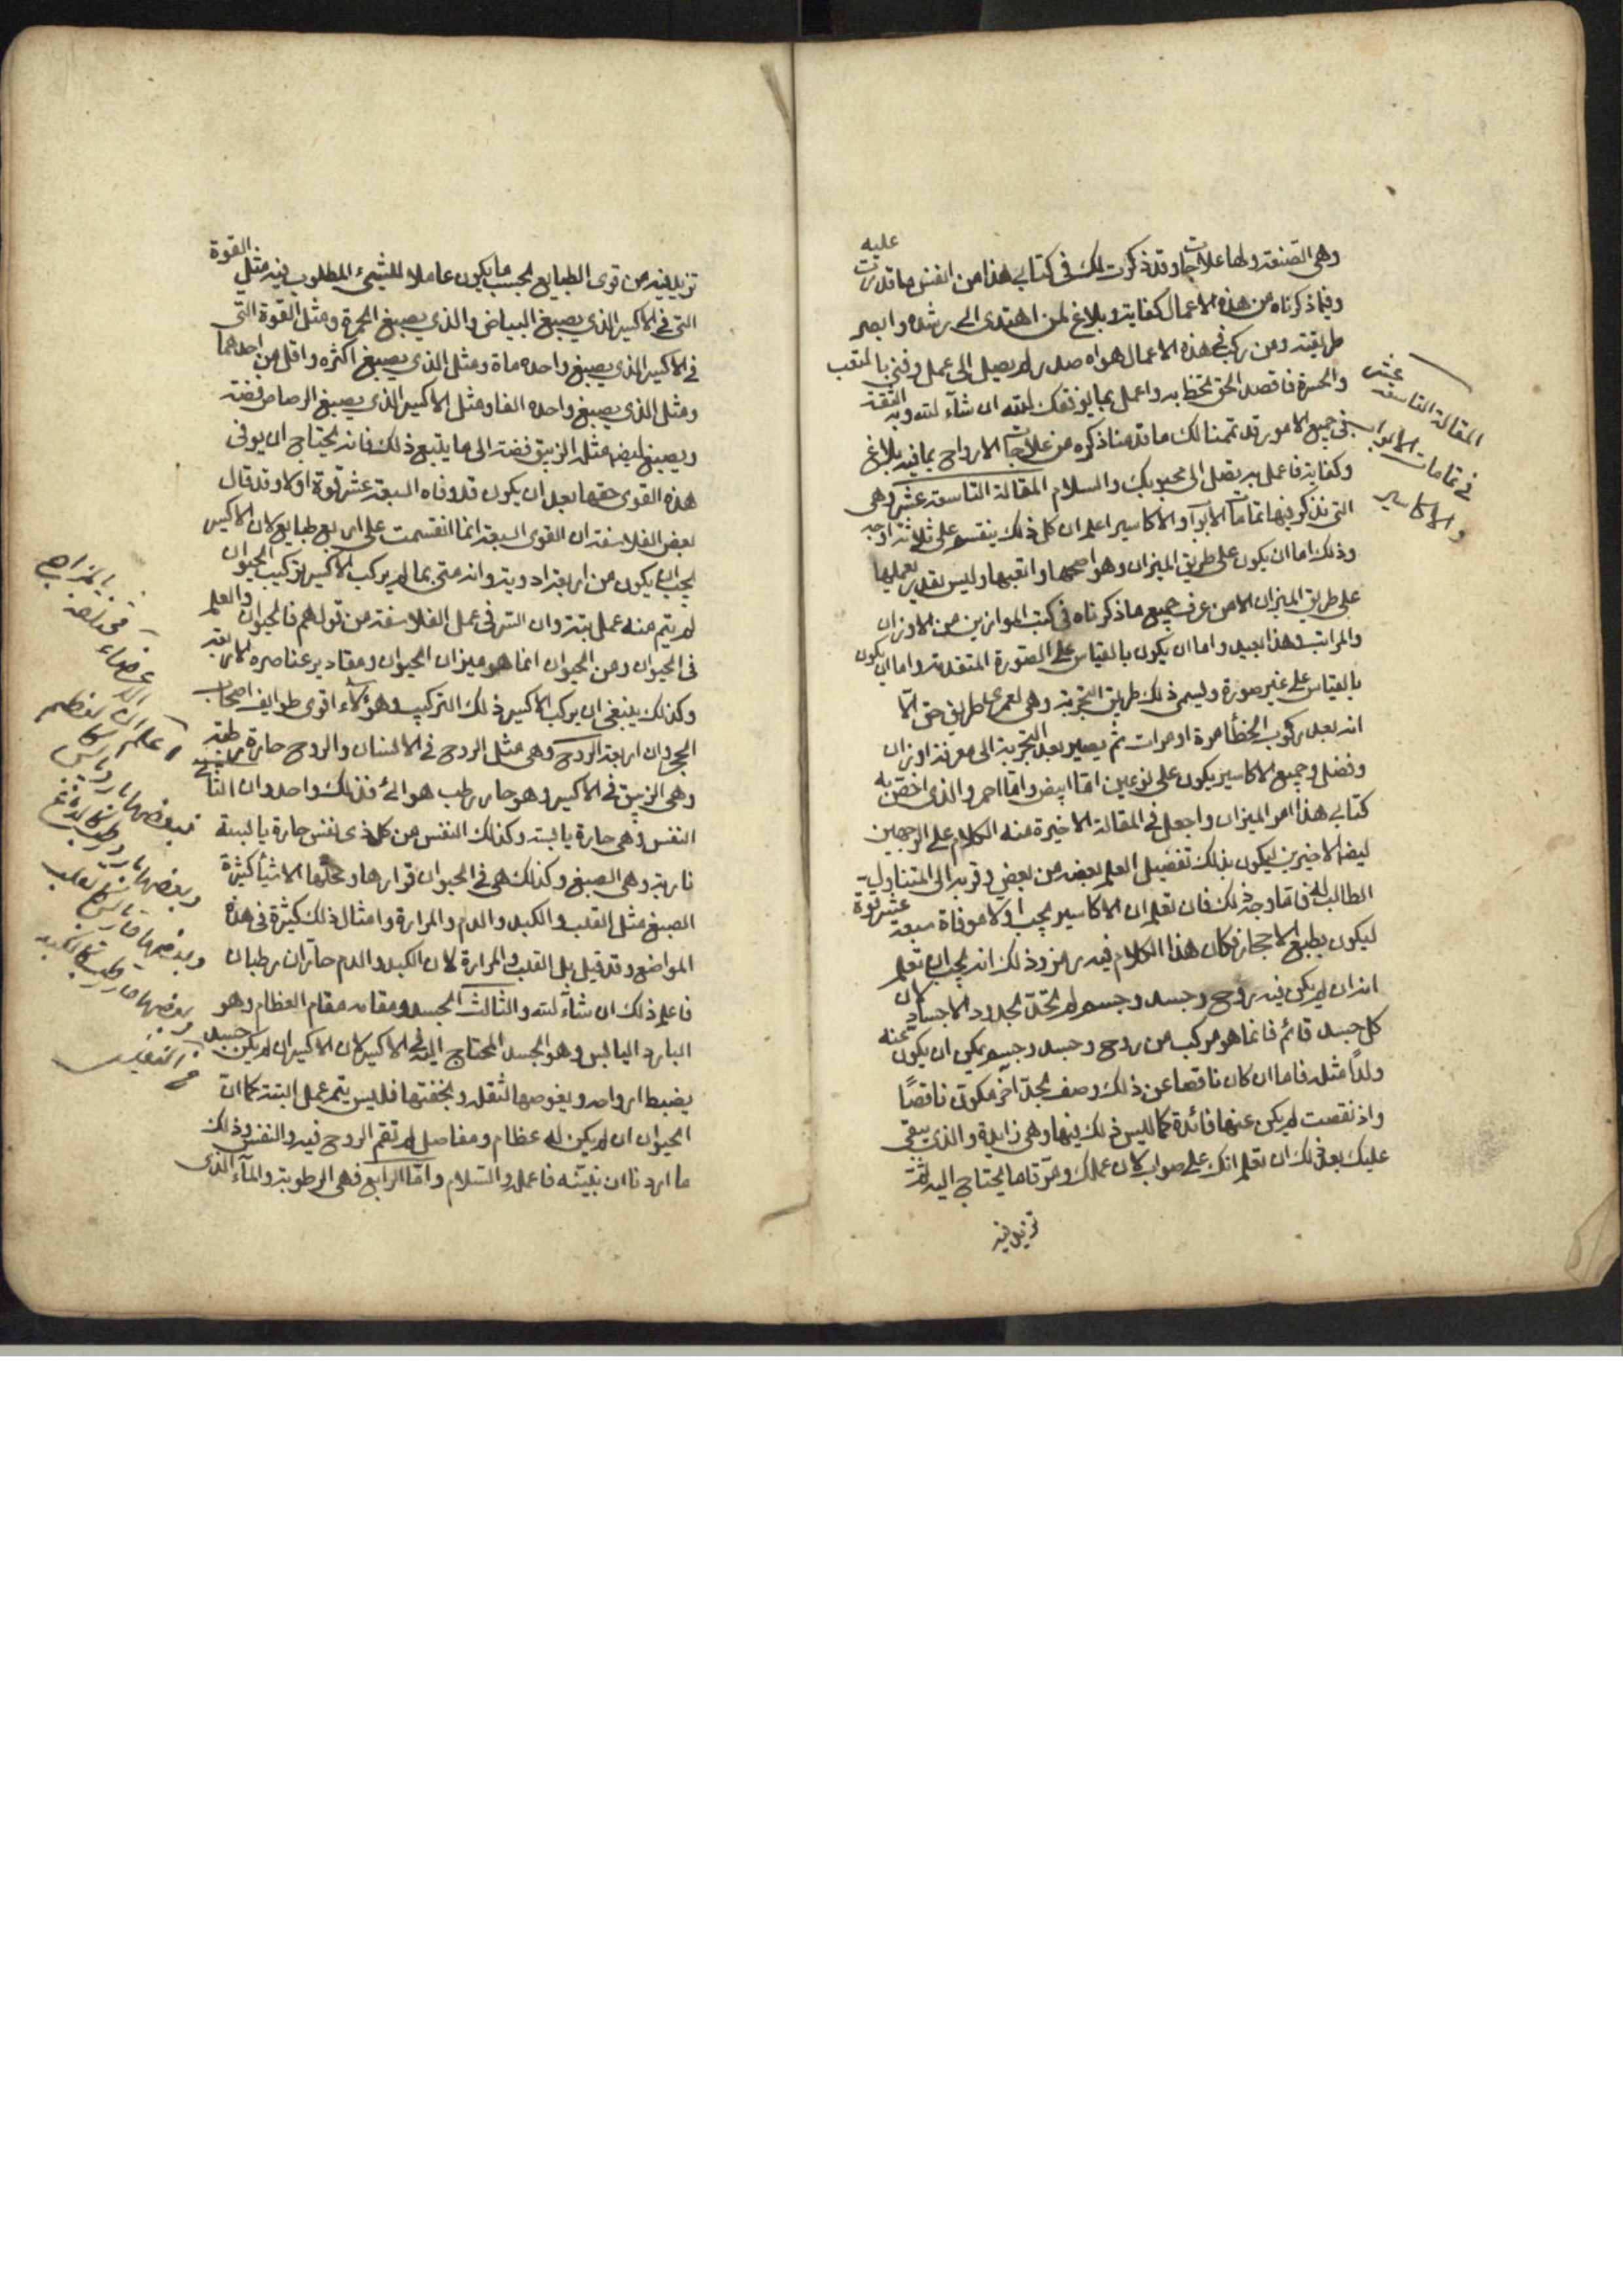 وهى الصنعة ولها علاجات وقد ذكرت لك فى كتابى هذا من الفنين ما قدرت عليه
وفيما ذكرناه من هذه الاعمال كفاية وبلاغ لمن اهتدى الى رشده وابصر
طريقته ومن ركب فى هذه الاعمال هواه صدر لم يصل الى عمل وفنى بالتعب
والحسرة فاقصد الحق تحظ به واعمل بما يوفقك الله ان شآء الله وبه الثقة
فى جميع الامور قد تممنا لك ما قدمنا ذكره من علاجات الارواح بما فيه بلاغ
وكفاية فاعمل به تصل الى محبوبك والسلام المقالة التاسعة عشر وهى
التى نذكر فيها تمامات الابواب والاكاسير اعلم ان كل ذلك ينقسم على ثلاثة اوجه
وذلك اما ان يكون على طريق الميزان وهو اصحها واتعبها وليس يقدر يعملها
على طريق الميزان الا من عرف جميع ما ذكرناه فى كتب الموازين من الاوزان
والمراتب وهذا بعيد واما ان يكون بالقياس على الصورة المتقدمة واما ان يكون
بالقياس على غير صورة ويسمى ذلك طريق التجربة وهى لعمرى على طريق حق الا
انه بعد ركوب الخطأ مرة او مرات ثم يصير بعد التجربة الى معرفة اوزان
وفضل وجميع الاكاسير يكون على نوعين امّا ابيض وامّا احمر والذى اختص به
كتابى هذا امر الميزان واجعل فى المقالة الاخيرة منه الكلام على الوجهين
ايضا الاخيرين ليكون بذلك تفضيل العلم بعضه من بعض وقربه الى المتناول
الطالب له فامّا وجه ذلك فان تعلم ان الاكاسير يجب اولا موفاة سبعة عشر قوة
ليكون بطبع الاحجار فكان هذا الكلام فيه رمز وذلك انه يجب ان تعلم
انه ان لم يكن فيه روح وجسد وجسم لم تحدّ بحدود الاجساد لان
كل جسد قائم فانما هو مركب من روح وجسد وجسم يمكن ان يكون عنه
ولداً مثله فاما ان كان ناقصا عن ذلك وصف بحدّ آخر فكوّن ناقصًا
واذ نقصت لم يكن عنها فائدة كما ليس ذلك فيها وهى زايدة والذى يبقى
عليك بعد ذلك ان تعلم انك على صواب لان عملك ومرتّا ما يحتاج اليه ثمّ
تزيد فيه
المقالة التاسعة عشر
فى تمامات الابواب
والاكاسير
تزيد فيه من قوى الطبايع بحسب ما يكون عاملا للشىء المطلوب فيه مثل القوة
التى فى الاكسير الذى يصبغ البياض والذى يصبغ الحمرة ومثل القوة التى
فى الاكسير الذى يصبغ واحده ماة ومثل الذى يصبغ اكثره واقل من احدهما
ومثل الذى يصبغ واحده الفا ومثل الاكسير الذى يصبغ الرصاص فضة
ويصبغ ايضا مثل الزيبق فضة الى ما يتبع ذلك فانه يحتاج ان يوفى
هذه القوى حقها بعد ان يكون قد وفاه السبعة عشر قوة اولا وقد قال
بعض الفلاسفة ان القوى السبعة انما انقسمت على اربع طبايع لان الاكسير
يجب ان يكون من اربعة ادوية وانه متى ما لم يركب الاكسير تركيب الحيوان
لم يتم منه عمل بتة وان السر فى عمل الفلاسفة من قولهم فالحيوان والعلم
فى الحيوان ومن الحيوان انما هو ميزان الحيوان ومقادير عناصره الاربعة
وكذلك ينبغى ان يركب الاكسير ذلك التركيب وهؤلآء اقوى طوايف اصحاب
الحجر وان اربعة الروح وهى مثل الروح فى الانسان والروح حارة رطبة
وهى الزيبق فى الاكسير وهو حار رطب هوائى فذلك واحد وان الثانى
النفس وهى حارة يابسة وكذلك النفس من كل ذى نفس حارة يابسة
نارية وهى الصبغ وكذلك هى فى الحيوان قرارها ومحلّها الاشيآ كثيرة
الصبغ مثل القلب والكبد والدم والمرارة وامثال ذلك كثيرة فى هذه
المواضع وقد قيل بل القلب والمرارة لان الكبد والدم حارّان رطبان
فاعلم ذلك ان شآء الله والثالث الجسد ومقامه مقام العظام وهو
البارد اليابس وهو الجسد المحتاج اليه فى الاكسير لان الاكسير ان لم يكن جسد
يضبط ارواحه ويغوصها لثقله وبخفتها فليس يتم عمل البتة كما ان
الحيوان ان لم يكن له عظام ومفاصل لم تقم الروح فيه والنفس وذلك
ما اردنا ان نبيّنه فاعمل والسلام وامّا الرابع فهى الرطوبة والمآء الذى
واعلم ان الاعضاء
فبعضها بارد يابس كالعظم
وبعضها بارد رطب كالدماغ
وبعضها حار يابس كالقلب
وبعضها حار رطب كالكبد